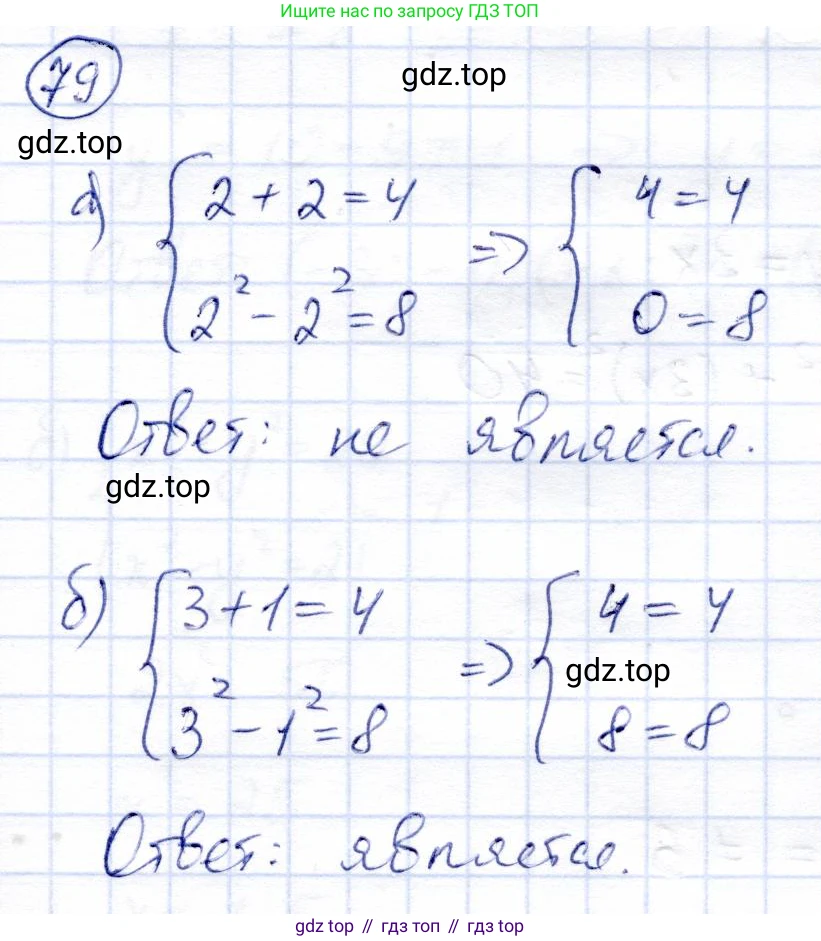 Ищите нас по запросу ГДЗ ТОП
79
gdz.top
gdz.top
а) { 2 + 2 = 4 => { 4 = 4
2² - 2² = 8 0 = 8
Ответ: не является.
gdz.top
б) { 3 + 1 = 4 => { 4 = 4
gdz.top
3² - 1² = 8 8 = 8
Ответ: является.
gdz.top // гдз топ // гдз.top